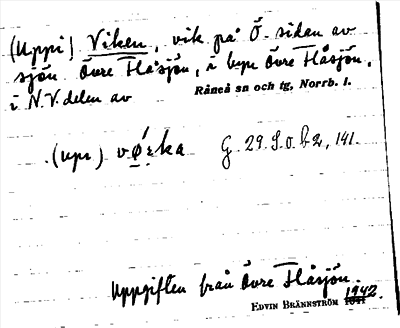 (Uppi) Viken, vik på Ö. sidan av
sjön Övre Flåsjön, i byn Övre Flåsjön,
i N.V. delen av Råneå sn och tg, Norrb. l.
(upi) G. 29. S. 0. b 2, 141.
Uppgiften från Övre Flåsjön.
EDVIN BRÄNNSTRÖM 1942.